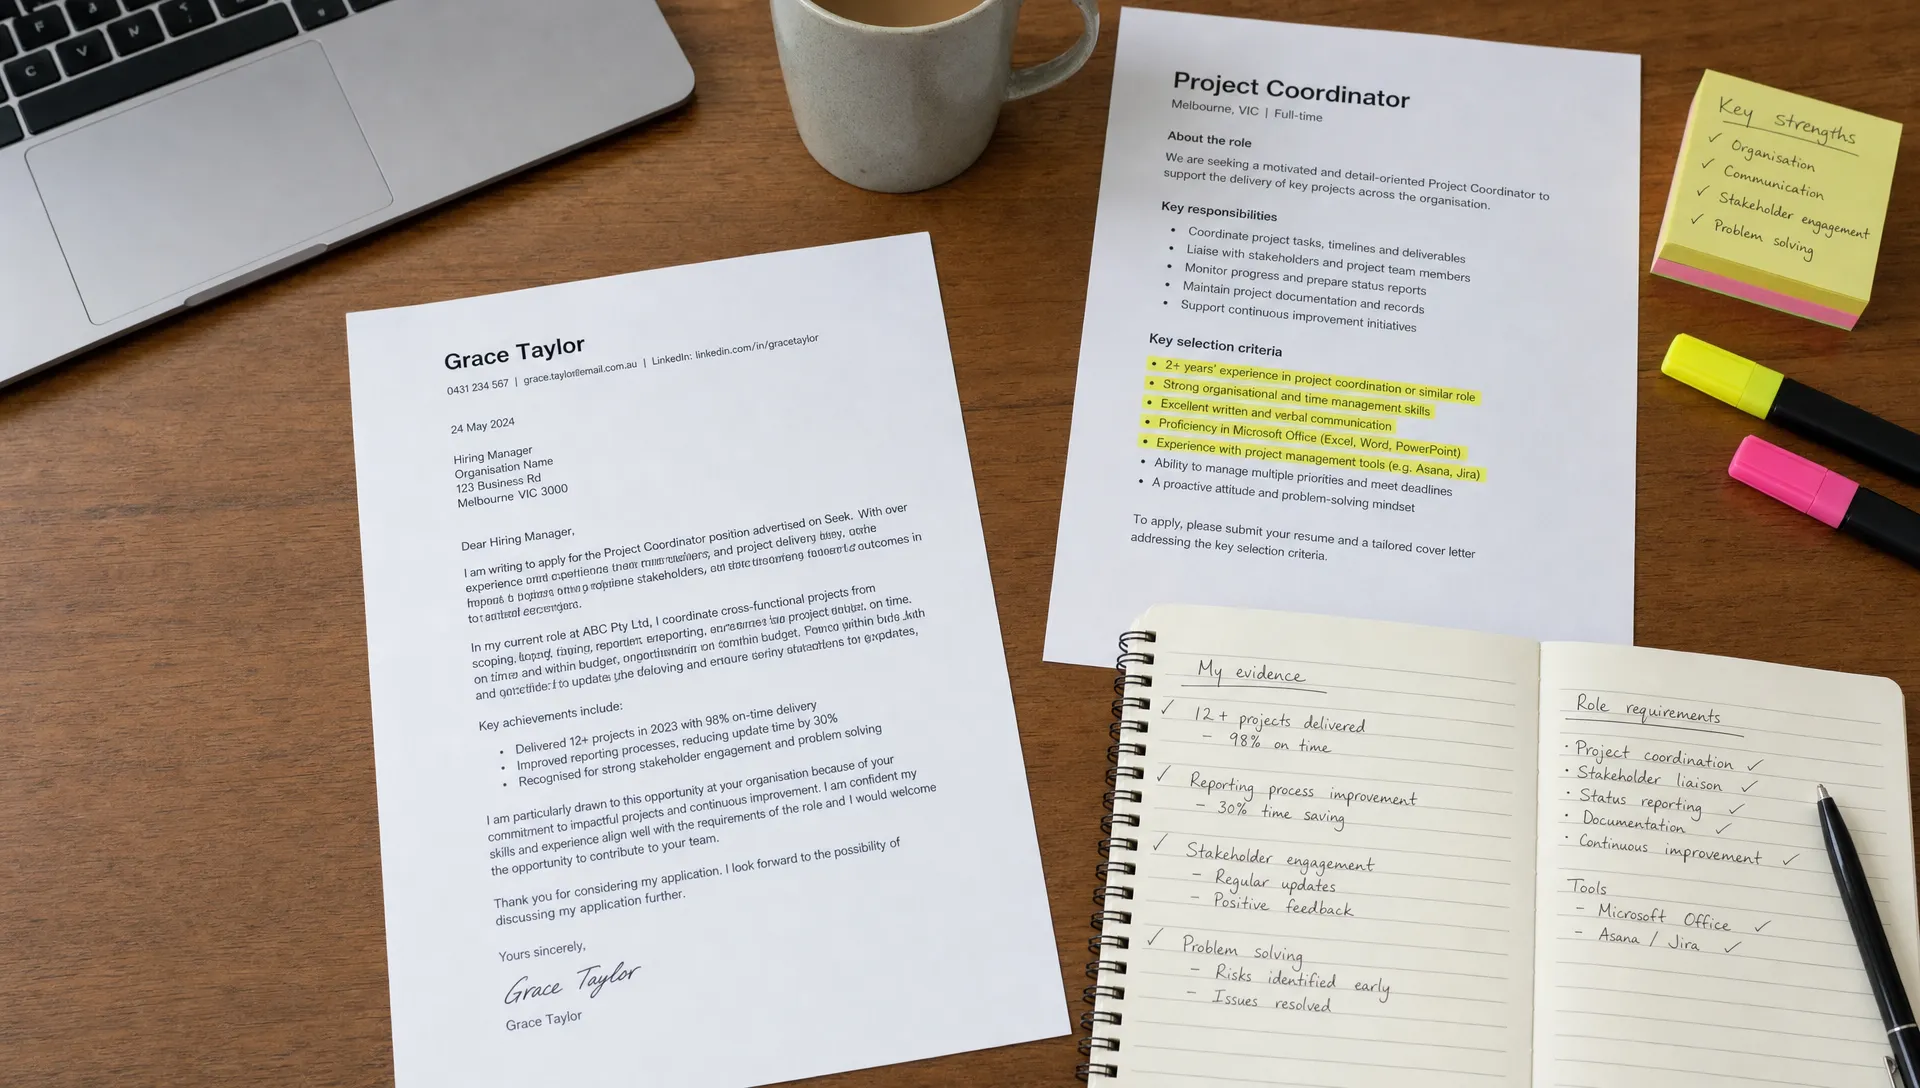 F
C
V
N
Grace Taylor
0431 234 567 | grace.taylor@email.com.au | LinkedIn: linkedin.com/in/gracetaylor
24 May 2024
Hiring Manager
Organisation Name
123 Business Rd
Melbourne VIC 3000
Dear Hiring Manager,
I am writing to apply for the Project Coordinator position advertised on Seek. With over
experience and experience and project delivery
stakeholders, outcomes in
In my current role at ABC Pty Ltd, I coordinate cross-functional projects from
scoping, reporting, project on time.
on time and within budget, budget. within
and to update and ensure
Key achievements include:
• Delivered 12+ projects in 2023 with 98% on-time delivery
• Improved reporting processes, reducing update time by 30%
• Recognised for strong stakeholder engagement and problem solving
I am particularly drawn to this opportunity at your organisation because of your
commitment to impactful projects and continuous improvement. I am confident my
skills and experience align well with the requirements of the role and I would welcome
the opportunity to contribute to your team.
Thank you for considering my application. I look forward to the possibility of
discussing my application further.
Yours sincerely,
Grace Taylor
Grace Taylor
Project Coordinator
Melbourne, VIC | Full-time
About the role
We are seeking a motivated and detail-oriented Project Coordinator to
support the delivery of key projects across the organisation.
Key responsibilities
• Coordinate project tasks, timelines and deliverables
• Liaise with stakeholders and project team members
• Monitor progress and prepare status reports
• Maintain project documentation and records
• Support continuous improvement initiatives
Key selection criteria
• 2+ years' experience in project coordination or similar role
• Strong organisational and time management skills
• Excellent written and verbal communication
• Proficiency in Microsoft Office (Excel, Word, PowerPoint)
• Experience with project management tools (e.g. Asana, Jira)
• Ability to manage multiple priorities and meet deadlines
• A proactive attitude and problem-solving mindset
To apply, please submit your resume and a tailored cover letter
addressing the key selection criteria.
Key strengths
✓ Organisation
✓ Communication
✓ Stakeholder engagement
✓ Problem solving
My evidence
✓ 12+ projects delivered
– 98% on time
✓ Reporting process improvement
– 30% time saving
✓ Stakeholder engagement
– Regular updates
– Positive feedback
✓ Problem solving
– Risks identified early
– Issues resolved
Role requirements
· Project coordination ✓
· Stakeholder liaison ✓
· Status reporting ✓
· Documentation ✓
· Continuous improvement ✓
Tools
– Microsoft Office ✓
– Asana / Jira ✓